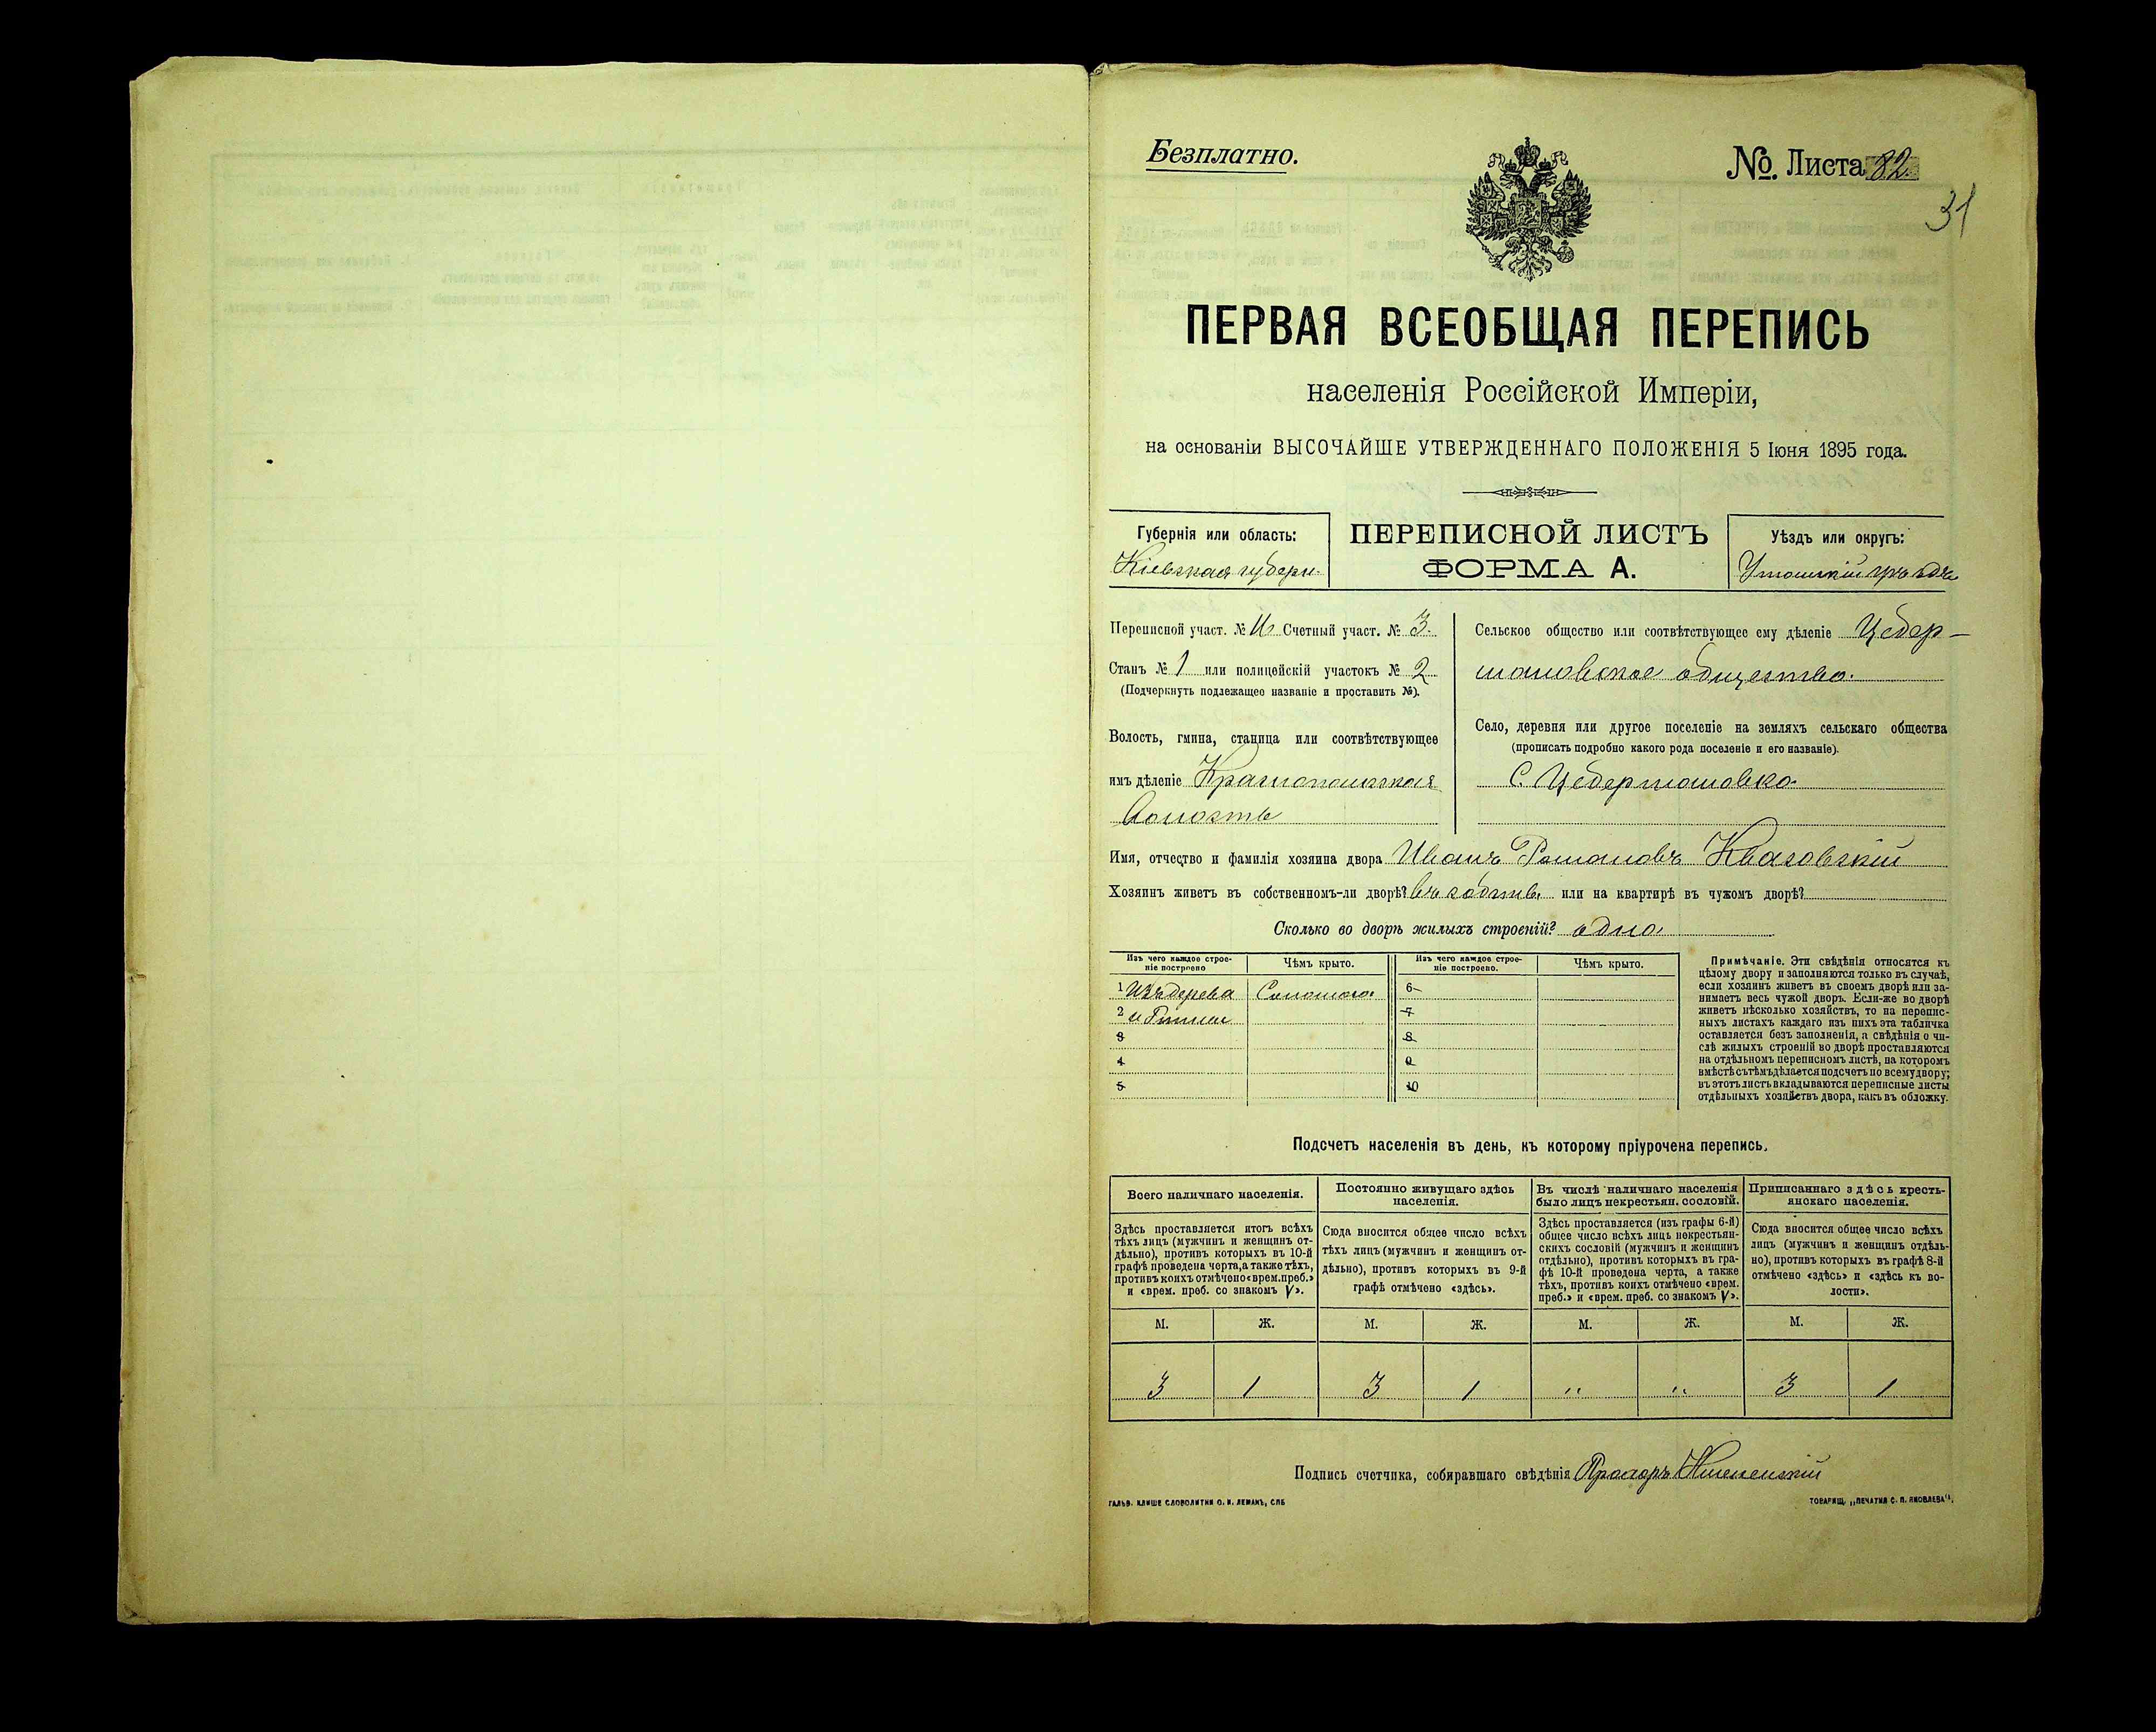 Безплатно.
№. Листа 82
31
ПЕРВАЯ ВСЕОБЩАЯ ПЕРЕПИСЬ
населенія Россійской Имперіи,
на основаніи ВЫСОЧАЙШЕ УТВЕРЖДЕННАГО ПОЛОЖЕНІЯ 5 Іюня 1895 года.
Губернія или область:
Кіевская губерн.
ПЕРЕПИСНОЙ ЛИСТЪ
ФОРМА А.
Уѣздъ или округъ:
Уманскій уѣздъ
Переписной участ. № Счетный участ. № 3.
Станъ № 1 или полицейскій участокъ № 2
(Подчеркнуть подлежащее названіе и проставить №).
Волость, гмина, станица или соотвѣтствующее
имъ дѣленіе Краснопольская
волость
Сельское общество или соотвѣтствующее ему дѣленіе Цебер-
мановское общество.
Село, деревня или другое поселеніе на земляхъ сельскаго общества
(прописать подробно какого рода поселеніе и его названіе).
С. Цебермановка
Имя, отчество и фамилія хозяина двора Иванъ Романовъ Квасовскій
Хозяинъ живетъ въ собственномъ-ли дворѣ? въ собств. или на квартирѣ въ чужомъ дворѣ?
Сколько во дворѣ жилыхъ строеній? одно
Изъ чего каждое строе-
ніе построено
Чѣмъ крыто.
1 Изъ дерева Соломою
2 и Глины
3
4
5
Изъ чего каждое строе-
ніе построено.
Чѣмъ крыто.
6
7
8
9
10
Примѣчаніе. Эти свѣдѣнія относятся къ
цѣлому двору и заполняются только въ случаѣ,
если хозяинъ живетъ въ своемъ дворѣ или за-
нимаетъ весь чужой дворъ. Если-же во дворѣ
живетъ нѣсколько хозяйствъ, то на перепис-
ныхъ листахъ каждаго изъ нихъ эта табличка
оставляется безъ заполненія, а свѣдѣнія о чи-
слѣ жилыхъ строеній во дворѣ проставляются
на отдѣльномъ переписномъ листѣ, на которомъ
вмѣстѣ съ тѣмъ дѣлается подсчетъ по всему двору;
въ этотъ листъ вкладываются переписные листы
отдѣльныхъ хозяйствъ двора, какъ въ обложку.
Подсчетъ населенія въ день, къ которому пріурочена перепись.
Всего наличнаго населенія.
Здѣсь проставляется итогъ всѣхъ
тѣхъ лицъ (мужчинъ и женщинъ от-
дѣльно), противъ которыхъ въ 10-й
графѣ проведена черта, а также тѣхъ,
противъ коихъ отмѣчено «врем. преб.»
и «врем. преб. со знакомъ V».
Постоянно живущаго здѣсь
населенія.
Сюда вносится общее число всѣхъ
тѣхъ лицъ (мужчинъ и женщинъ от-
дѣльно), противъ которыхъ въ 9-й
графѣ отмѣчено «здѣсь».
Въ числѣ наличнаго населенія
было лицъ некрестьян. сословій.
Здѣсь проставляется (изъ графы 6-й)
общее число всѣхъ лицъ некрестьян-
скихъ сословій (мужчинъ и женщинъ
отдѣльно), противъ которыхъ въ гра-
фѣ 10-й проведена черта, а также
тѣхъ, противъ коихъ отмѣчено «врем.
преб.» и «врем. преб. со знакомъ V».
Приписаннаго здѣсь кресть-
янскаго населенія.
Сюда вносится общее число всѣхъ
лицъ (мужчинъ и женщинъ отдѣль-
но), противъ которыхъ въ графѣ 8-й
отмѣчено «здѣсь» и «здѣсь къ во-
лости».
М. Ж. М. Ж. М. Ж. М. Ж.
3 1 3 1 " " 3 1
Подпись счетчика, собиравшаго свѣдѣнія Прохоръ
ГАЛЬВ. КЛИШЕ СЛОВОЛИТНИ О. И. ЛЕМАНЪ, СПБ
ТОВАРИЩ. „ПЕЧАТНЯ С. П. ЯКОВЛЕВА".